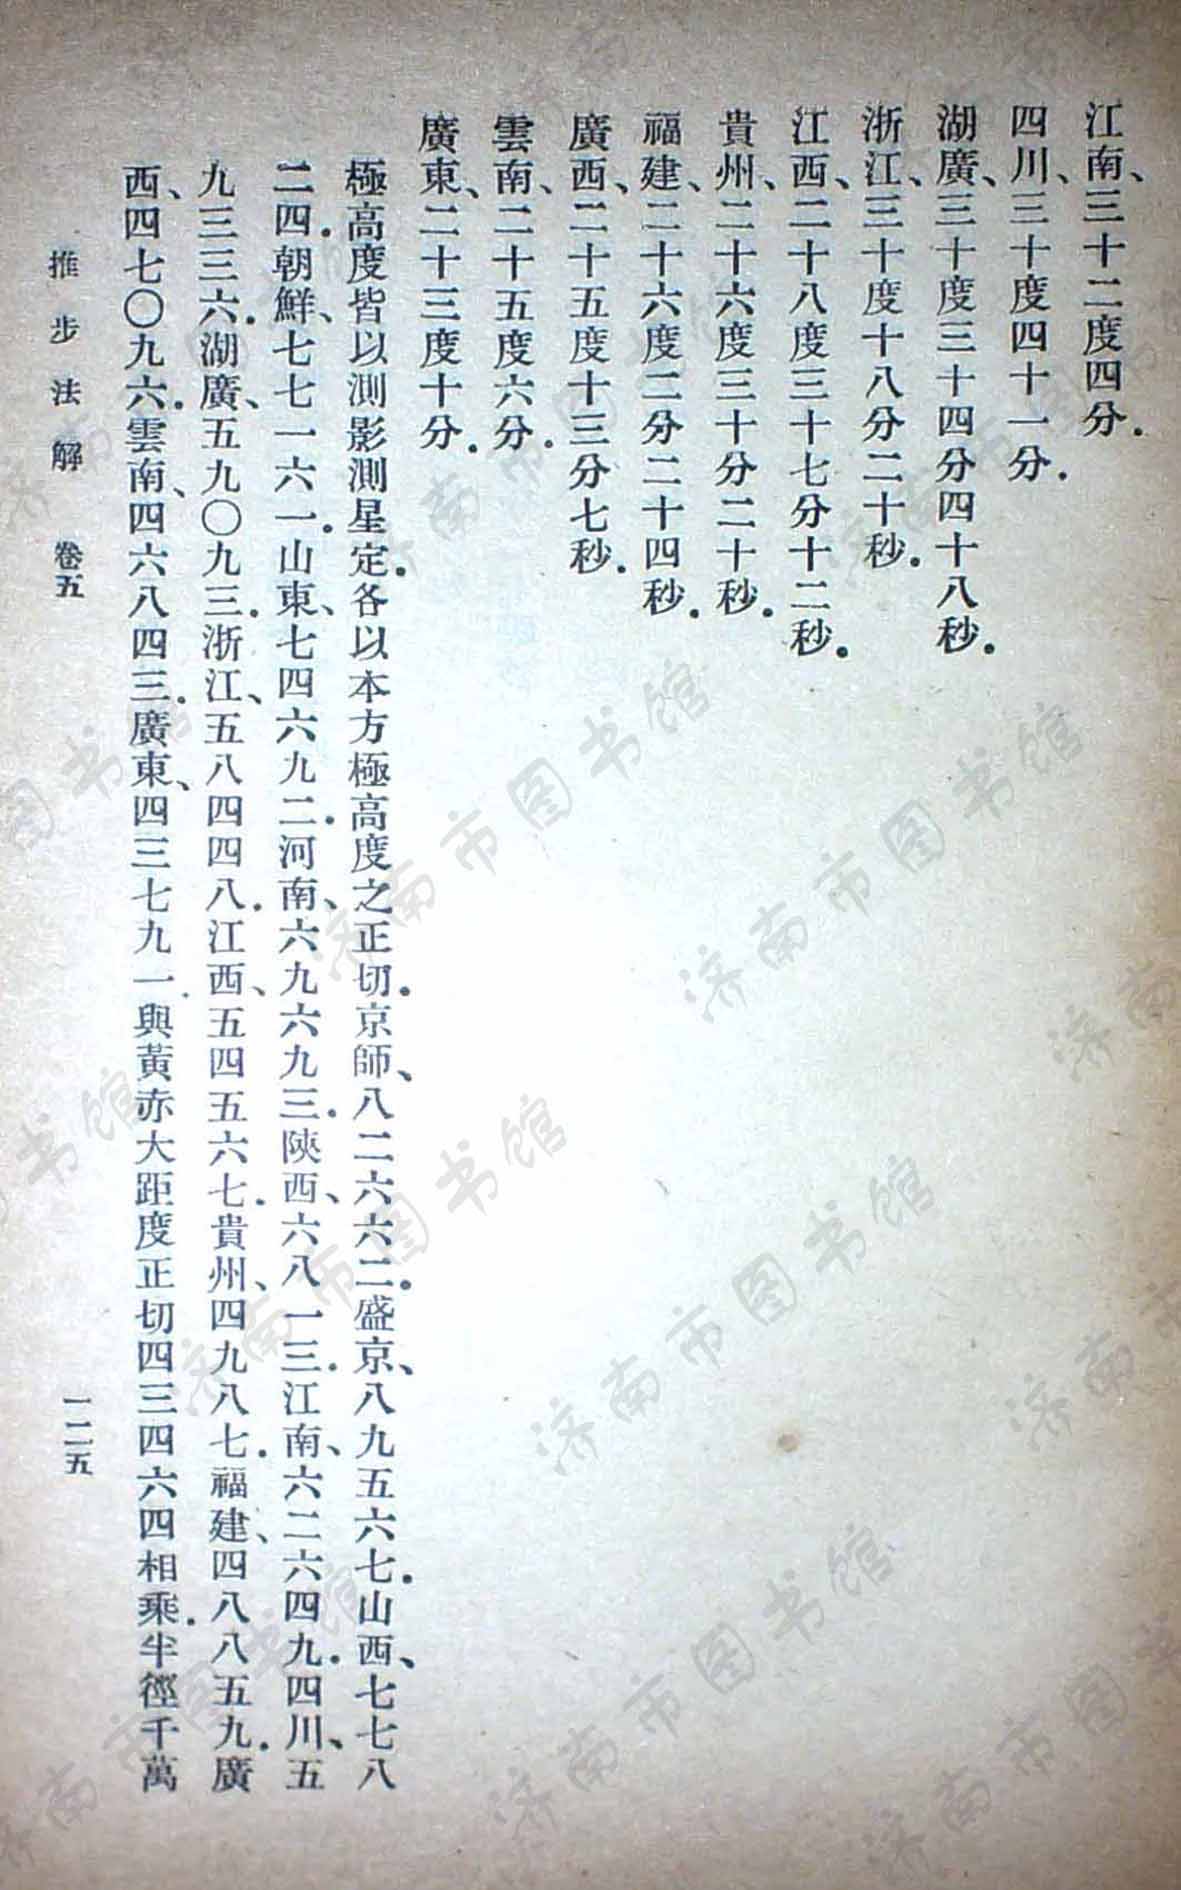 江南、三十二度四分．
四川、三十度四十一分．
湖廣、三十度三十四分四十八秒．
浙江、三十度十八分二十秒．
江西、二十八度三十七分十二秒．
貴州、二十六度三十分二十秒．
福建、二十六度二分二十四秒．
廣西、二十五度十三分七秒．
雲南、二十五度六分．
廣東、二十三度十分．
極高度皆以測影測星定．各以本方極高度之正切．京師、八二六六二．盛京、八九五六七．山西、七七八
二四．朝鮮、七七一六一．山東、七四六九二．河南、六九六九三．陝西、六八一三．江南、六二六四九．四川、五
九三三六．湖廣、五九〇九三．浙江、五八四四八．江西、五四五六七．貴州、四九八七．福建、四八八五九．廣
西、四七〇九六．雲南、四六八四三．廣東、四三七九一．與黃赤大距度正切四三四六四相乘．半徑千萬
推步法解 卷五
一二五
濟南市图书馆